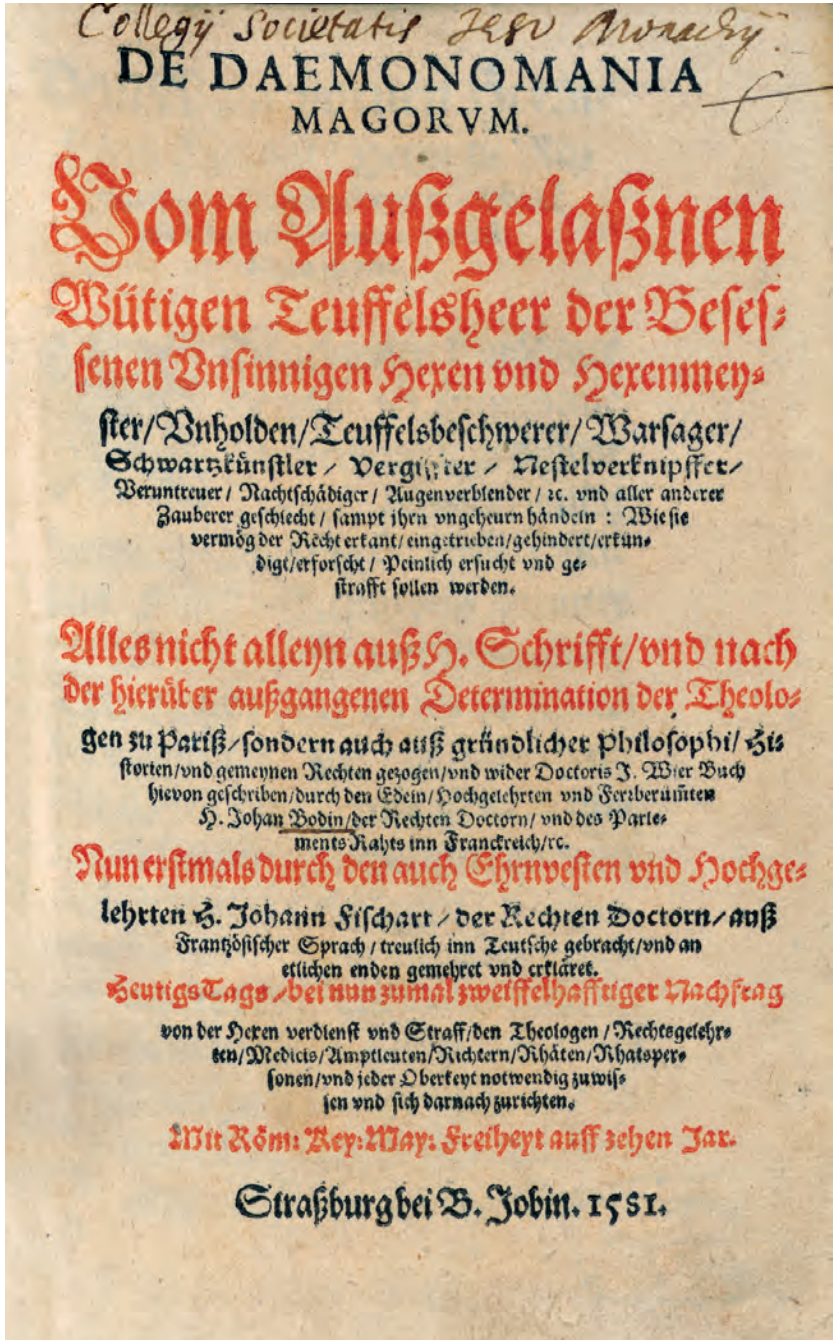 Collegij Societatis Jesu Monachij.
DE DAEMONOMANIA
MAGORVM.
Vom Außgelaßnen
Wütigen Teuffelsheer der Beses⸗
senen Vnsinnigen Hexen vnd Hexenmey⸗
ster/Vnholden/Teuffelsbeschwerer/Warsager/
Schwartzkünstler/Vergiffter/Nestelverknipffer/
Veruntreuer/Nachtschädiger/Augenverblender/ꝛc. vnd aller anderer
Zauberer geschlecht/sampt ihrn vngeheurn händeln: Wie sie
vermög der Recht erkant/eingetrieben/gehindert/erkün⸗
digt/erforscht/Peinlich ersucht vnd ge⸗
strafft sollen werden.
Alles nicht alleyn auß H. Schrifft/vnd nach
der hierüber außgangenen Determination der Theolo⸗
gen zu Pariß/sondern auch auß gründlicher Philosophi/Hi⸗
storien/vnd gemeynen Rechten gezogen/vnd wider Doctoris J. Wier Buch
hievon geschriben/durch den Edeln/Hochgelehrten vnd Fernberümten
H. Johan Bodin/der Rechten Doctorn/vnd des Parle⸗
ments Rahts inn Franckreich/ꝛc.
Nun erstmals durch den auch Ehrnvesten vnd Hochge⸗
lehrten H. Johann Fischart/der Rechten Doctorn/auß
Frantzösischer Sprach/treulich inn Teutsche gebracht/vnd an
etlichen enden gemehret vnd erkläret.
Heutigs Tags/bei nun zumal zweiffelhafftiger Nachfrag
von der Hexen verdienst vnd Straff/den Theologen/Rechtsgelehr⸗
ten/Medicis/Amptleuten/Richtern/Rhäten/Rhatsper⸗
sonen/vnd jeder Oberkeyt notwendig zuwis⸗
sen vnd sich darnach zurichten.
Mit Röm: Key: May: Freiheyt auff zehen Jar.
Straßburg bei B. Jobin. 1581.